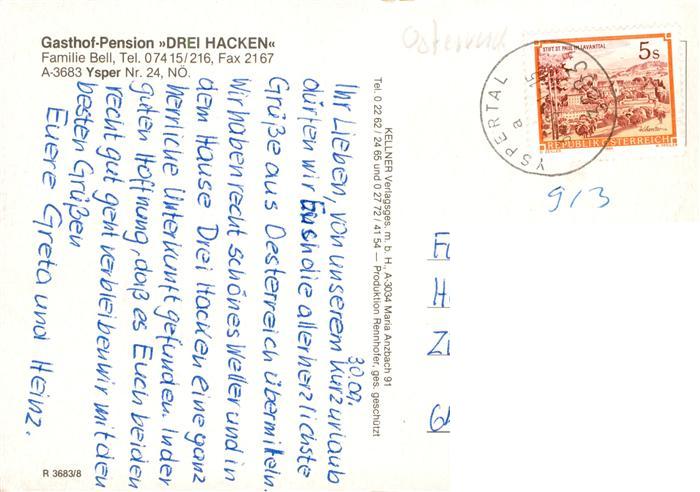 Gasthof-Pension »DREI HACKEN«
Familie Bell, Tel. 07415/216, Fax 2167
A-3683 Ysper Nr. 24, NÖ.
30.09.
Ihr Lieben, von unserem Kurzurlaub
dürfen wir Euch die allerherzlichste
Grüße aus Oesterreich übermitteln.
Wir haben recht schönes Wetter und in
dem Hause Drei Hacken eine ganz
herrliche Unterkunft gefunden. In der
guten Hoffnung, daß es Euch beiden
recht gut geht verbleiben wir mit den
besten Grüßen
Euere Greta und Heinz.
R 3683/8
KELLNER Verlagsges. m. b. H., A-3034 Maria Anzbach 91
Tel. 0 22 62 / 24 65 und 0 27 72 / 41 54 — Produktion Rennhofer, ges. geschützt
STIFT ST. PAUL IM LAVANTTAL
5 S
REPUBLIK ÖSTERREICH
YSPERTAL
a
9/3